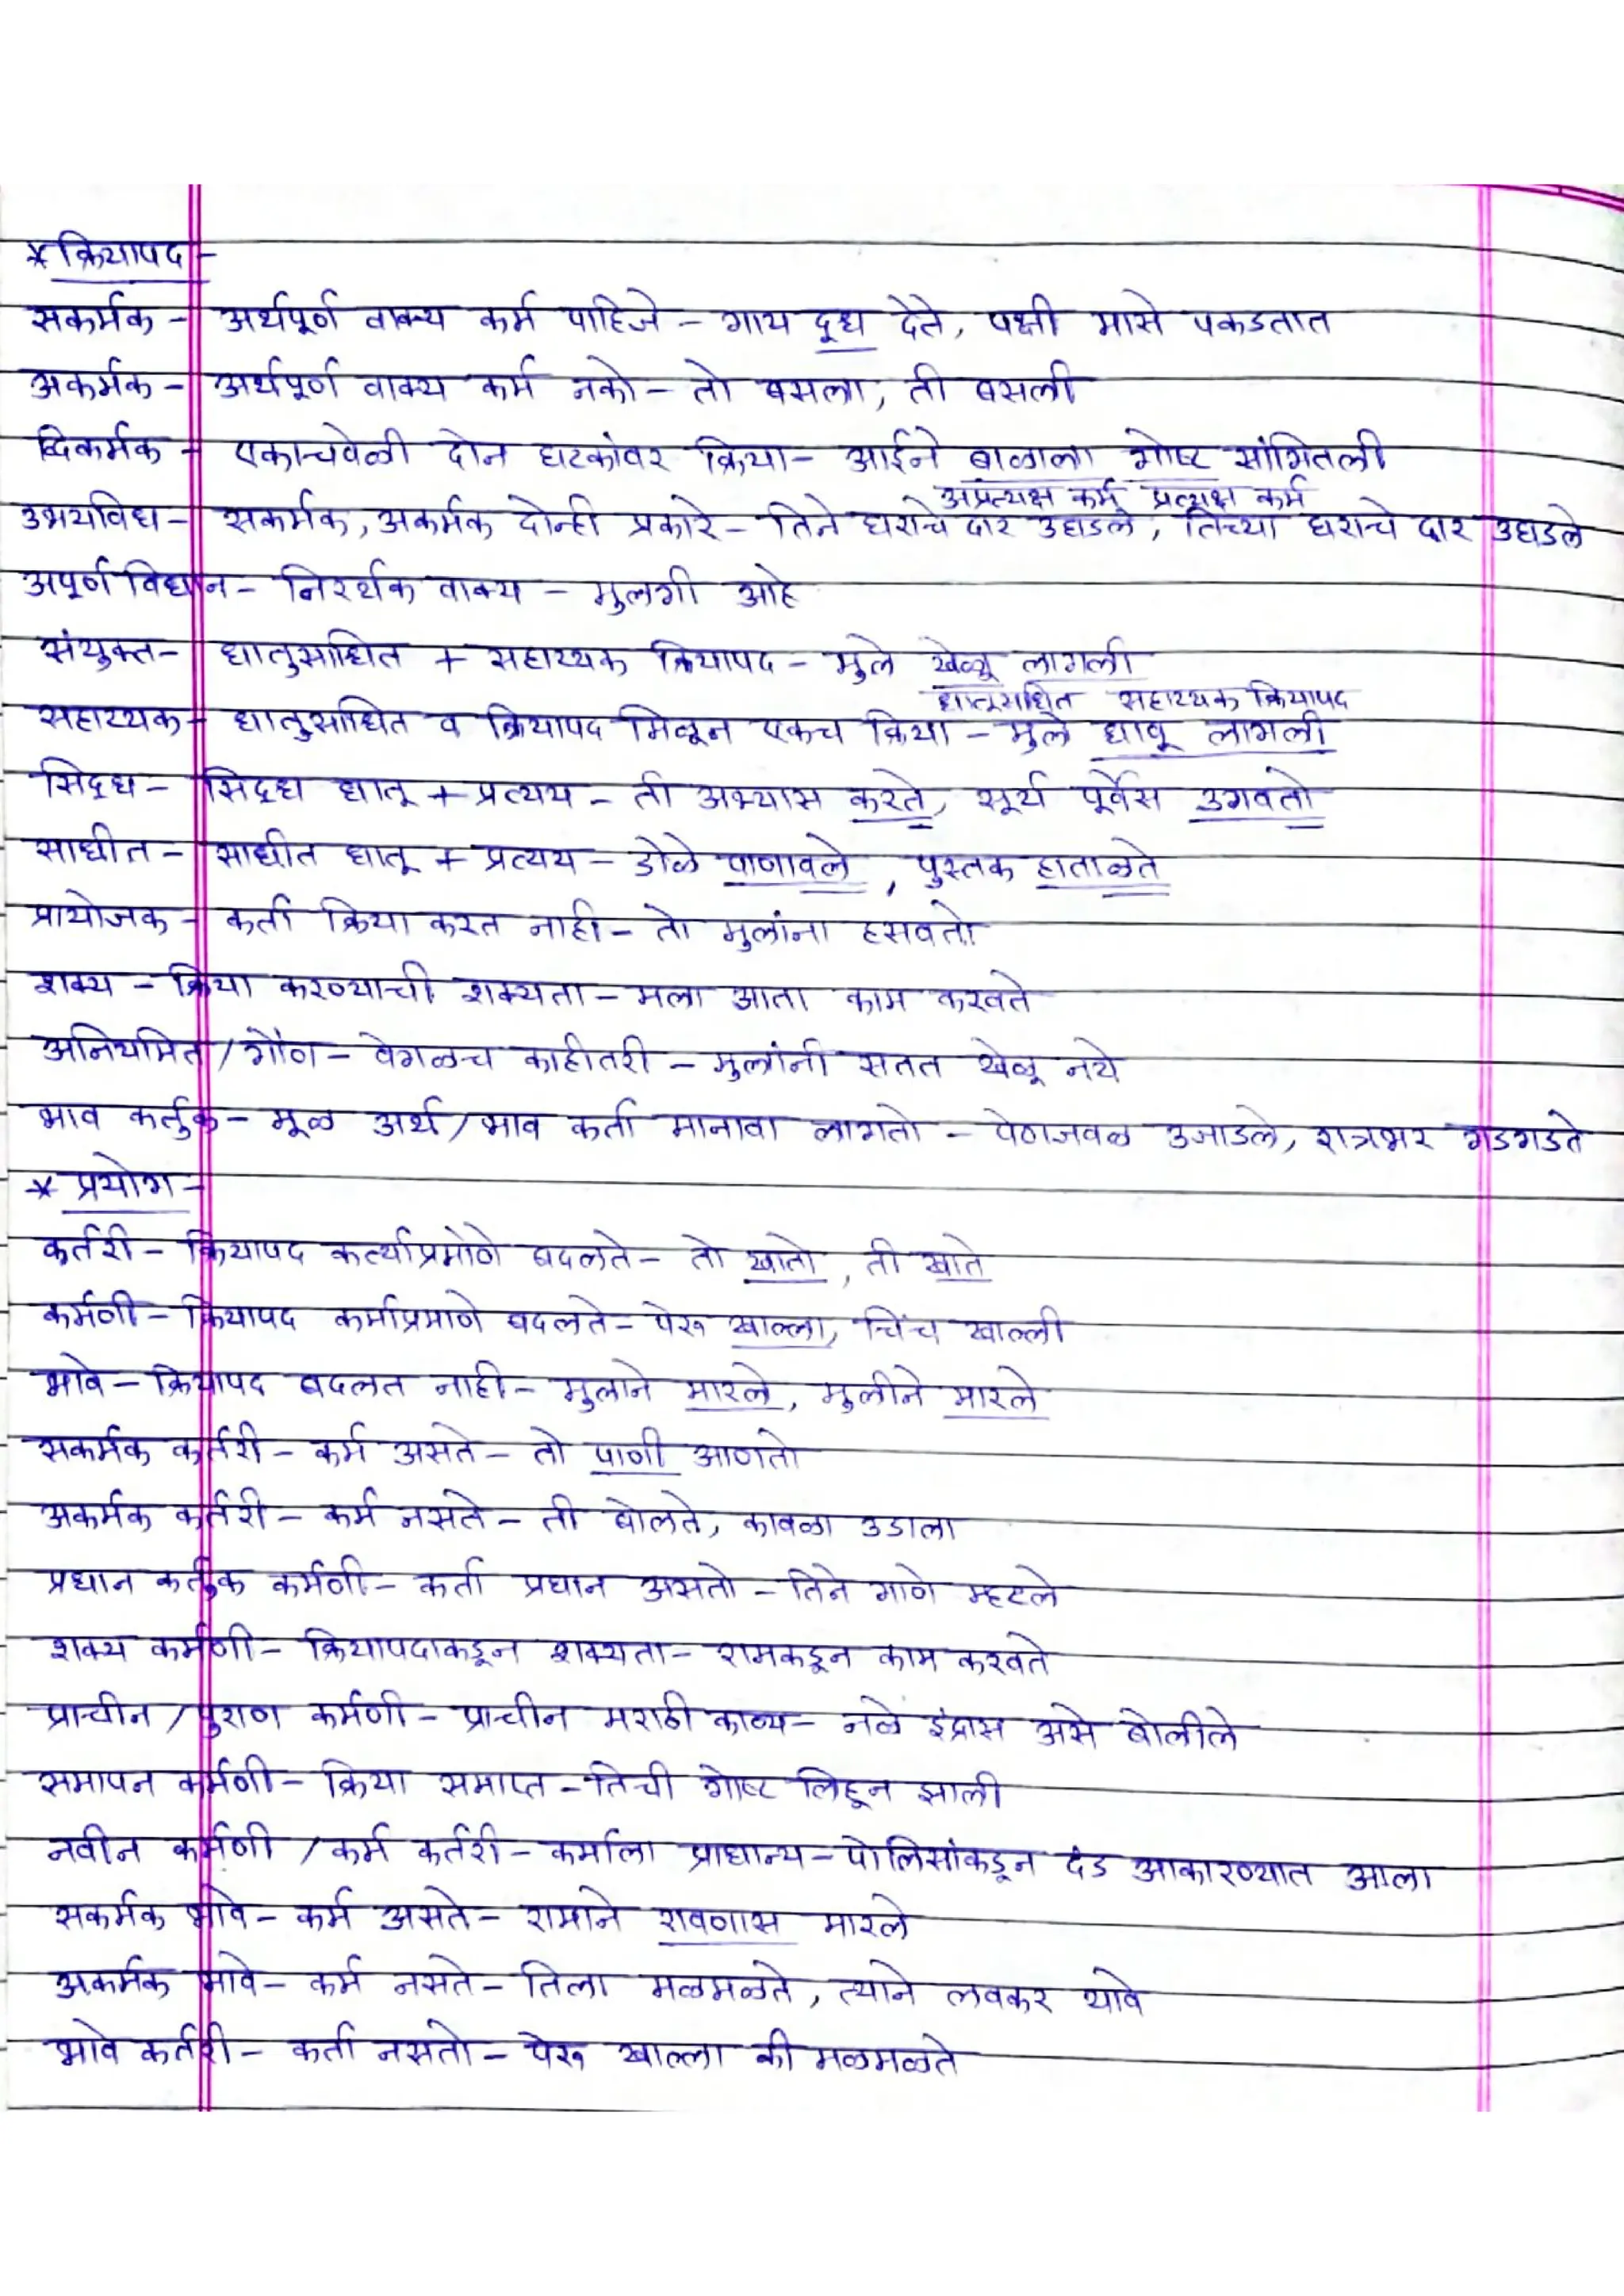 * क्रियापद -
सकर्मक - अर्थपूर्ण वाक्य कर्म पाहिजे - गाय दूध देते, पक्षी मासे पकडतात
अकर्मक - अर्थपूर्ण वाक्य कर्म नको - तो बसला, ती बसली
द्विकर्मक - एकाचवेळी दोन घटकांवर क्रिया - आईने बाळाला गोष्ट सांगितली
अप्रत्यक्ष कर्म प्रत्यक्ष कर्म
उभयविध - सकर्मक, अकर्मक दोन्ही प्रकारे - तिने घराचे दार उघडले, तिच्या घराचे दार उघडले
अपूर्ण विधान - निरर्थक वाक्य - मुलगी आहे
संयुक्त - धातुसाधित + सहाय्यक क्रियापद - मुले खेळू लागली
धातुसाधित सहाय्यक क्रियापद
सहाय्यक - धातुसाधित व क्रियापद मिळून एकच क्रिया - मुले धावू लागली
सिद्ध - सिद्ध धातू + प्रत्यय - ती अभ्यास करते, सूर्य पूर्वेस उगवतो
साधीत - साधीत धातू + प्रत्यय - डोळे पाणावले, पुस्तक हाताळते
प्रायोजक - कर्ता क्रिया करत नाही - तो मुलांना हसवतो
शक्य - क्रिया करण्याची शक्यता - मला आता काम करवते
अनियमित / गौण - वेगळच काहीतरी - मुलांनी सतत खेळू नये
भाव कर्तुक - मूळ अर्थ / भाव कर्ता मानावा लागतो - पेणजवळ उजाडले, रात्रभर गडगडते
* प्रयोग -
कर्तरी - क्रियापद कर्त्याप्रमाणे बदलते - तो खातो, ती खाते
कर्मणी - क्रियापद कर्माप्रमाणे बदलते - पेरू खाल्ला, चिंच खाल्ली
भावे - क्रियापद बदलत नाही - मुलाने मारले, मुलीने मारले
सकर्मक कर्तरी - कर्म असते - तो पाणी आणतो
अकर्मक कर्तरी - कर्म नसते - ती बोलते, कावळा उडाला
प्रधान कर्तुक कर्मणी - कर्ता प्रधान असतो - तिने गाणे म्हटले
शक्य कर्मणी - क्रियापदाकडून शक्यता - रामकडून काम करवते
प्राचीन / पुराण कर्मणी - प्राचीन मराठी काव्य - नळे इंद्रास असे बोलीले
समापन कर्मणी - क्रिया समाप्त - तिची गोष्ट लिहून झाली
नवीन कर्मणी / कर्म कर्तरी - कर्माला प्राधान्य - पोलिसांकडून दंड आकारण्यात आला
सकर्मक भावे - कर्म असते - रामाने रावणास मारले
अकर्मक भावे - कर्म नसते - तिला मळमळते, त्याने लवकर यावे
भावे कर्तरी - कर्ता नसतो - पेरू खाल्ला की मळमळते